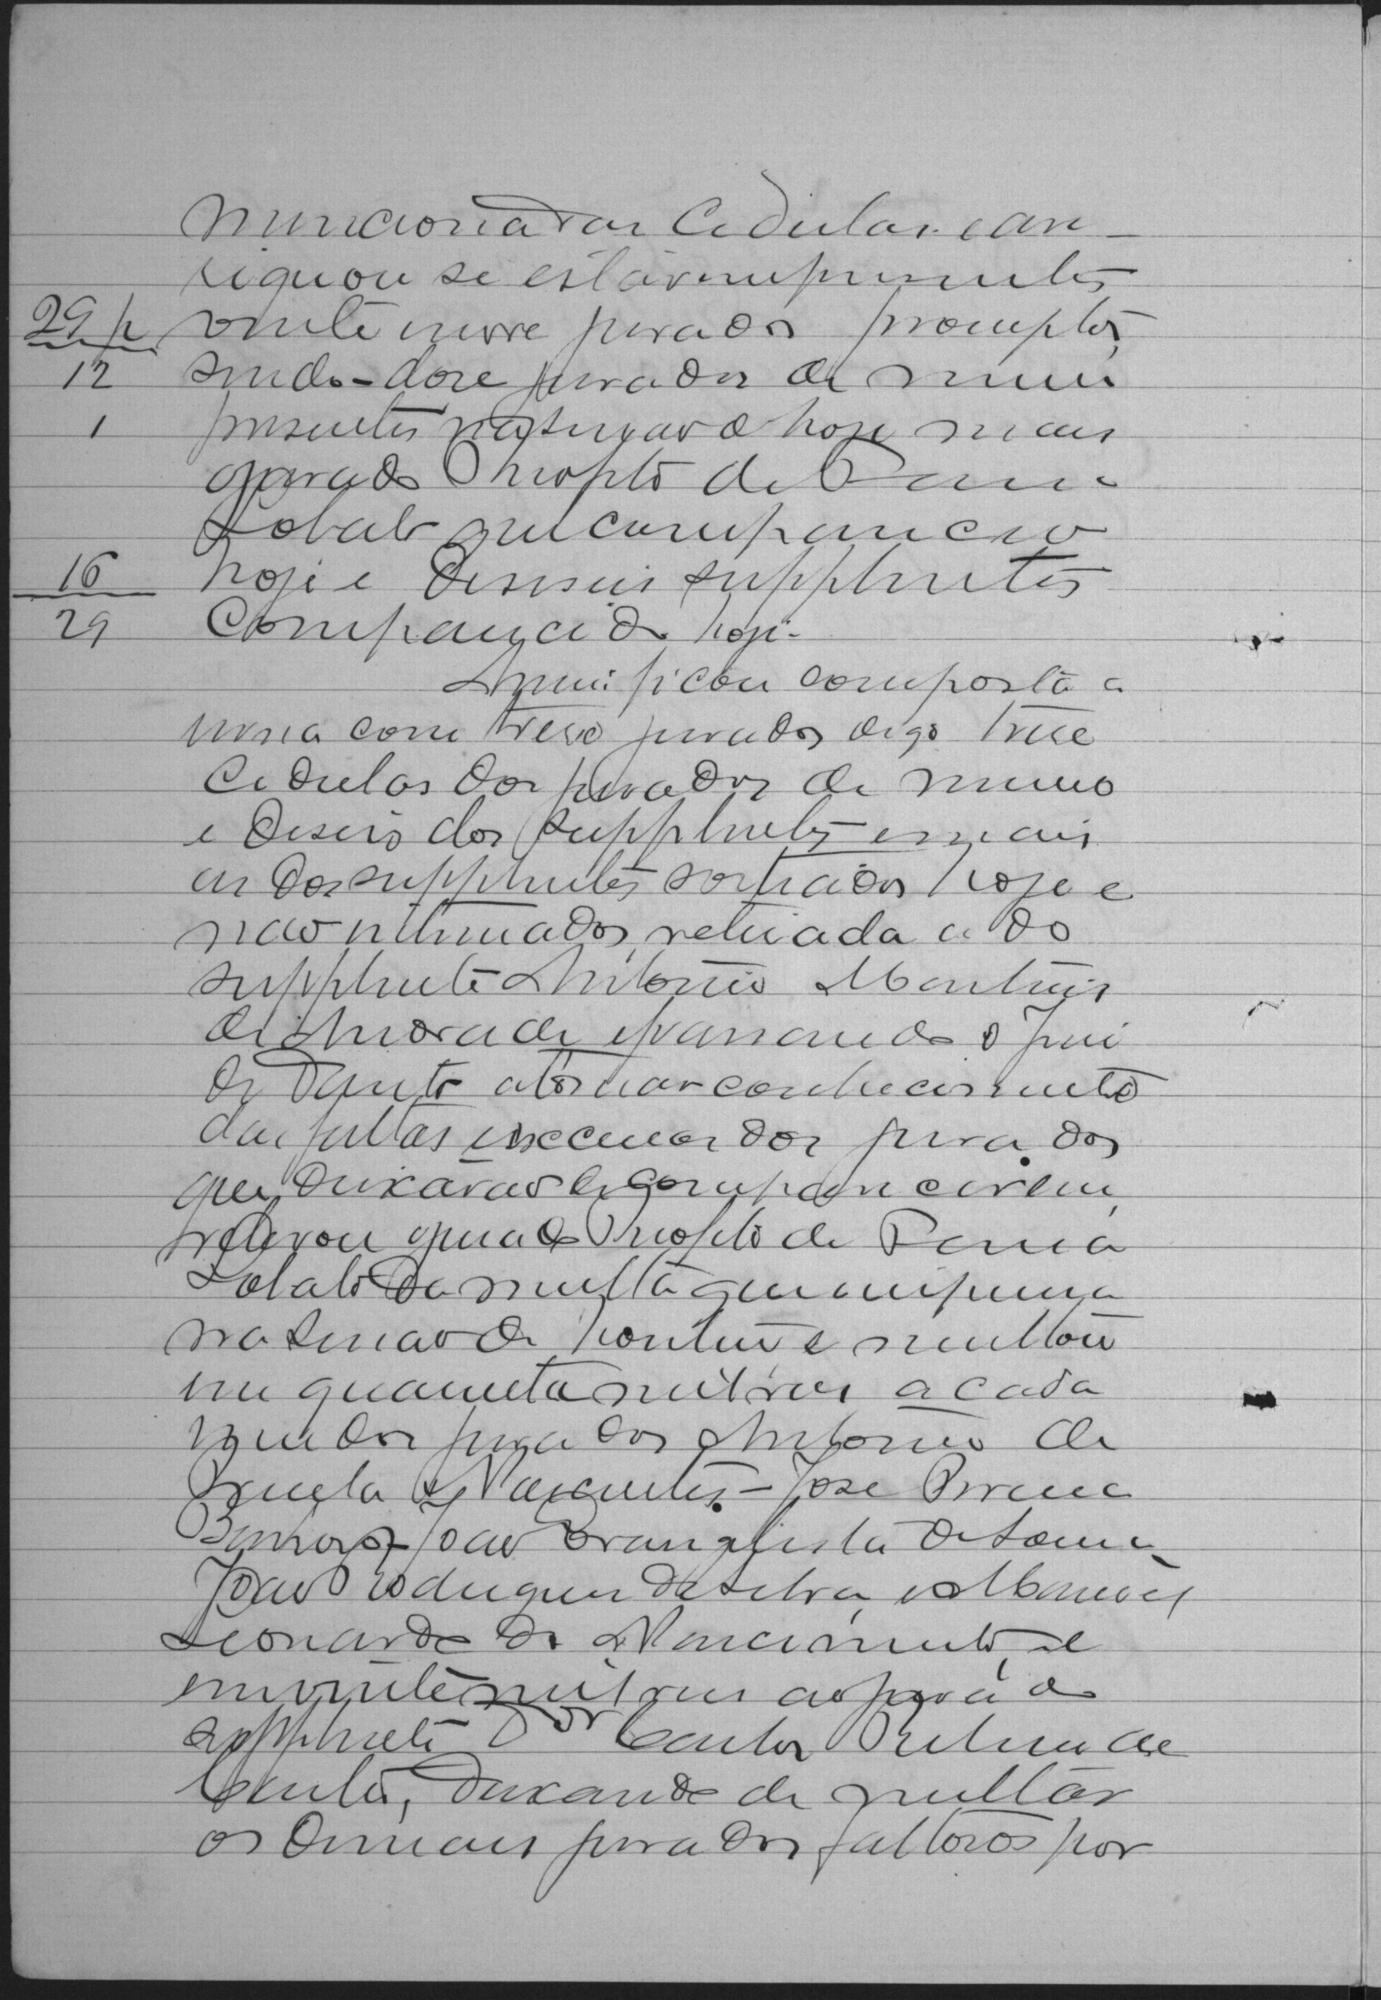 mencionadas cedulas. can-
siguou se estárem presentes
29 p vinte nove jurados promptos,
12 sendo-doze jurados do numero
1 presentes na sessão d hoje mais
o jurado de Faria
Lobato que compareceu
16 hoje e deseseis supplentes
29 comparecidos hoje.
Assim ficou composta a
urna com treze jurados digo treze
cedulas dos jurados do numero
e deseis dos supplentes e mais
as dos supplentes sorteados hoje e
não intimados, retirada a do
supplente Antonio Martins
de Andrade e passando o Juiz
de Direito a tomar conhecimento
das faltas e escusas dos jurados
que deixarão de comparecerem,
relevou o jurado de Faria
Lobato da multa que impuzera
na sessão de hontem e multou
em quarenta mil reis a cada
um dos jurados Antonio de
José Pereira
Barbosa João Evangelista de Souza,
João Rodrigues da Silva, e Manoel
Leonardo do Nascimento, e
em vinte mil reis ao jurado
supplente Dor Carlos de
deixando de multar
os demais jurados faltosos por